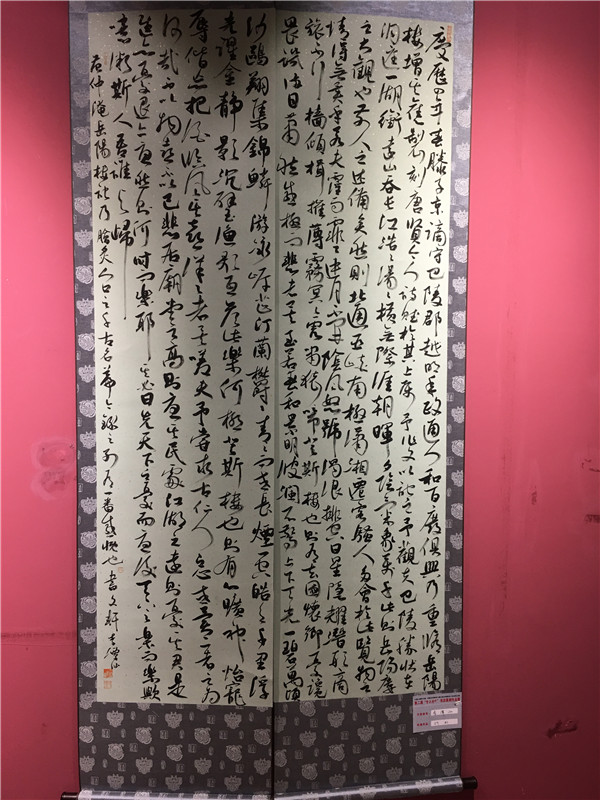 慶歷四年春滕子京謫守巴陵郡越明年政通人和百廢俱興乃重脩岳陽
樓增其舊製刻唐賢今人詩賦於其上屬予作文以記之予觀夫巴陵勝狀在
洞庭一湖銜遠山吞長江浩浩湯湯橫無際涯朝暉夕陰氣象萬千此則岳陽樓
之大觀也前人之述備矣然則北通巫峽南極瀟湘遷客騷人多會於此覽物之
情得無異乎若夫霪雨霏霏連月不開陰風怒號濁浪排空日星隱耀潛形商
旅不行檣傾楫摧薄霧冥冥虎嘯猿啼登斯樓也則有去國懷鄉憂讒
畏譏滿目蕭然感極而悲者矣至若春和景明波瀾不驚上下天光一碧萬頃
沙鷗翔集錦鱗游泳岸芷汀蘭鬱鬱青青而或長煙一空皓月千里浮
光躍金靜影沉璧漁歌互答此樂何極登斯樓也則有心曠神怡寵
辱偕忘把酒臨風其喜洋洋者矣嗟夫予嘗求古仁人之心或異二者之為
何哉不以物喜不以己悲居廟堂之高則憂其民處江湖之遠則憂其君是
進亦憂退亦憂然則何時而樂耶其必曰先天下之憂而憂後天下之樂而樂歟
噫微斯人吾誰與歸
范仲淹岳陽樓記乃膾炙人口之千古名篇今錄之別有一番感慨也